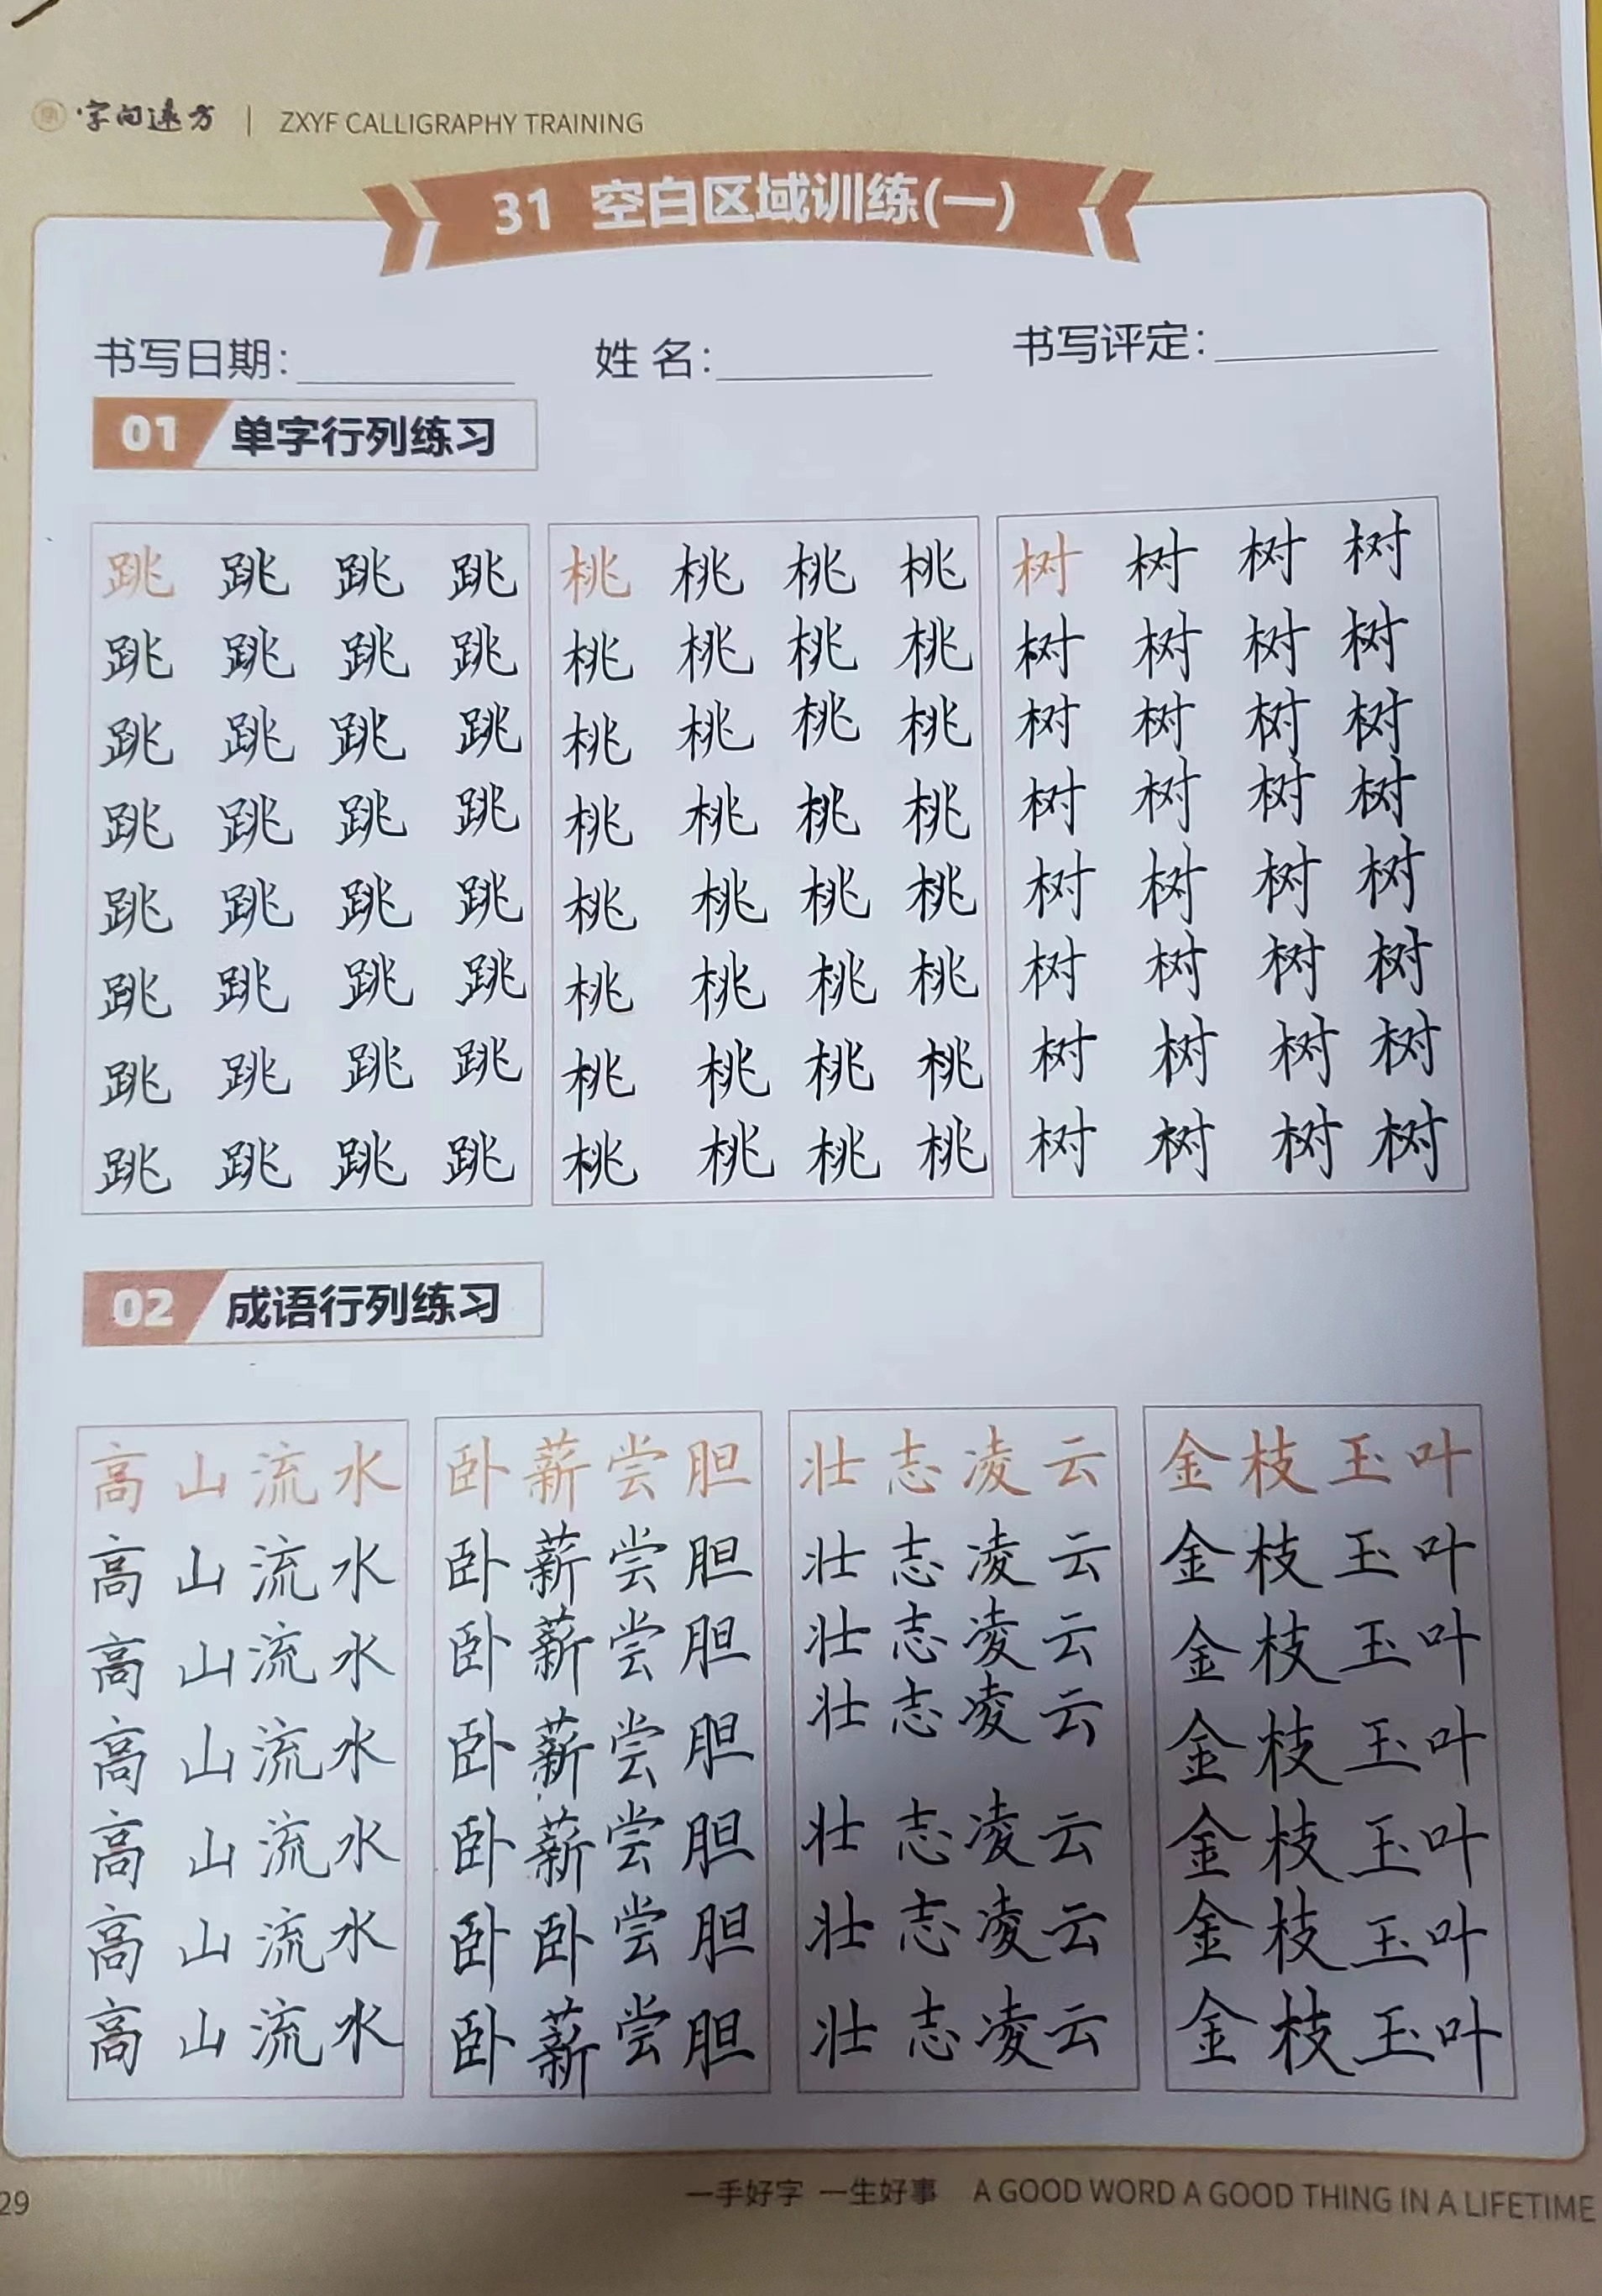 字向远方 | ZXYF CALLIGRAPHY TRAINING
31 空白区域训练(一)
书写日期: 姓 名: 书写评定:
01 单字行列练习
跳 跳 跳 跳 桃 桃 桃 桃 树 树 树 树
跳 跳 跳 跳 桃 桃 桃 桃 树 树 树 树
跳 跳 跳 跳 桃 桃 桃 桃 树 树 树 树
跳 跳 跳 跳 桃 桃 桃 桃 树 树 树 树
跳 跳 跳 跳 桃 桃 桃 桃 树 树 树 树
跳 跳 跳 跳 桃 桃 桃 桃 树 树 树 树
跳 跳 跳 跳 桃 桃 桃 桃 树 树 树 树
跳 跳 跳 跳 桃 桃 桃 桃 树 树 树 树
02 成语行列练习
高山流水 卧薪尝胆 壮志凌云 金枝玉叶
高山流水 卧薪尝胆 壮志凌云 金枝玉叶
高山流水 卧薪尝胆 壮志凌云 金枝玉叶
高山流水 卧薪尝胆 壮志凌云 金枝玉叶
高山流水 卧薪尝胆 壮志凌云 金枝玉叶
高山流水 卧卧尝胆 壮志凌云 金枝玉叶
高山流水 卧薪尝胆 壮志凌云 金枝玉叶
29 一手好字 一生好事 A GOOD WORD A GOOD THING IN A LIFETIME